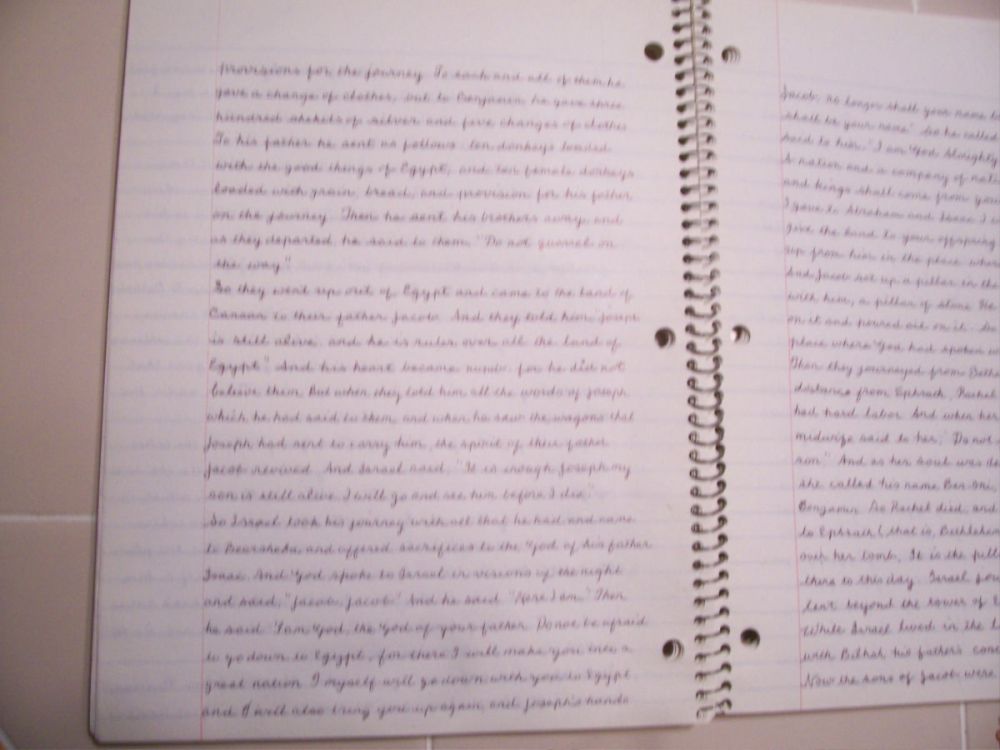 provisions for the journey. To each and all of them he
gave a change of clothes, but to Benjamin he gave three
hundred shekels of silver and five changes of clothes.
To his father he sent as follows: ten donkeys loaded
with the good things of Egypt, and ten female donkeys
loaded with grain, bread, and provision for his father
on the journey. Then he sent his brothers away, and
as they departed, he said to them, "Do not quarrel on
the way."
So they went up out of Egypt and came to the land of
Canaan to their father Jacob. And they told him, "Joseph
is still alive, and he is ruler over all the land of
Egypt." And his heart became numb, for he did not
believe them. But when they told him all the words of Joseph
which he had said to them, and when he saw the wagons that
Joseph had sent to carry him, the spirit of their father
Jacob revived. And Israel said, "It is enough, Joseph my
son is still alive. I will go and see him before I die."
So Israel took his journey with all that he had and came
to Beersheba, and offered sacrifices to the God of his father
Isaac. And God spoke to Israel in visions of the night
and said, "Jacob, Jacob." And he said "Here I am." Then
he said "I am God, the God of your father. Do not be afraid
to go down to Egypt, for there I will make you into a
great nation. I myself will go down with you to Egypt
and I will also bring you up again, and Joseph's hands
Jacob, no longer shall your name be
shall be your name." So he called
said to him, "I am God Almighty
A nation and a company of
and kings shall come from your
I gave to Abraham and Isaac I
give the land to your offspring
up from him in the place where
And Jacob set up a pillar in the
with him, a pillar of stone. He
on it and poured oil on it. So
place where God had spoken
Then they journeyed from
distance from Ephrath, Rachel
had hard labor. And when her
midwife said to her, "Do not
son." And as her soul was
she called his name Ben-Oni,
Benjamin. So Rachel died, and
to Ephrath (that is, Bethlehem
over her tomb, It is the
there to this day. Israel
tent beyond the tower of
While Israel lived in the
with Bilhah his father's
Now the sons of Jacob were